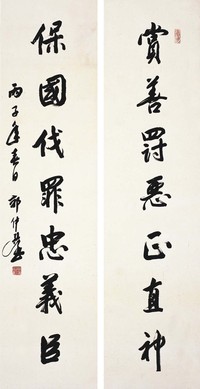 賞善罰惡正直神
保國伐罪忠義臣
丙子年春日